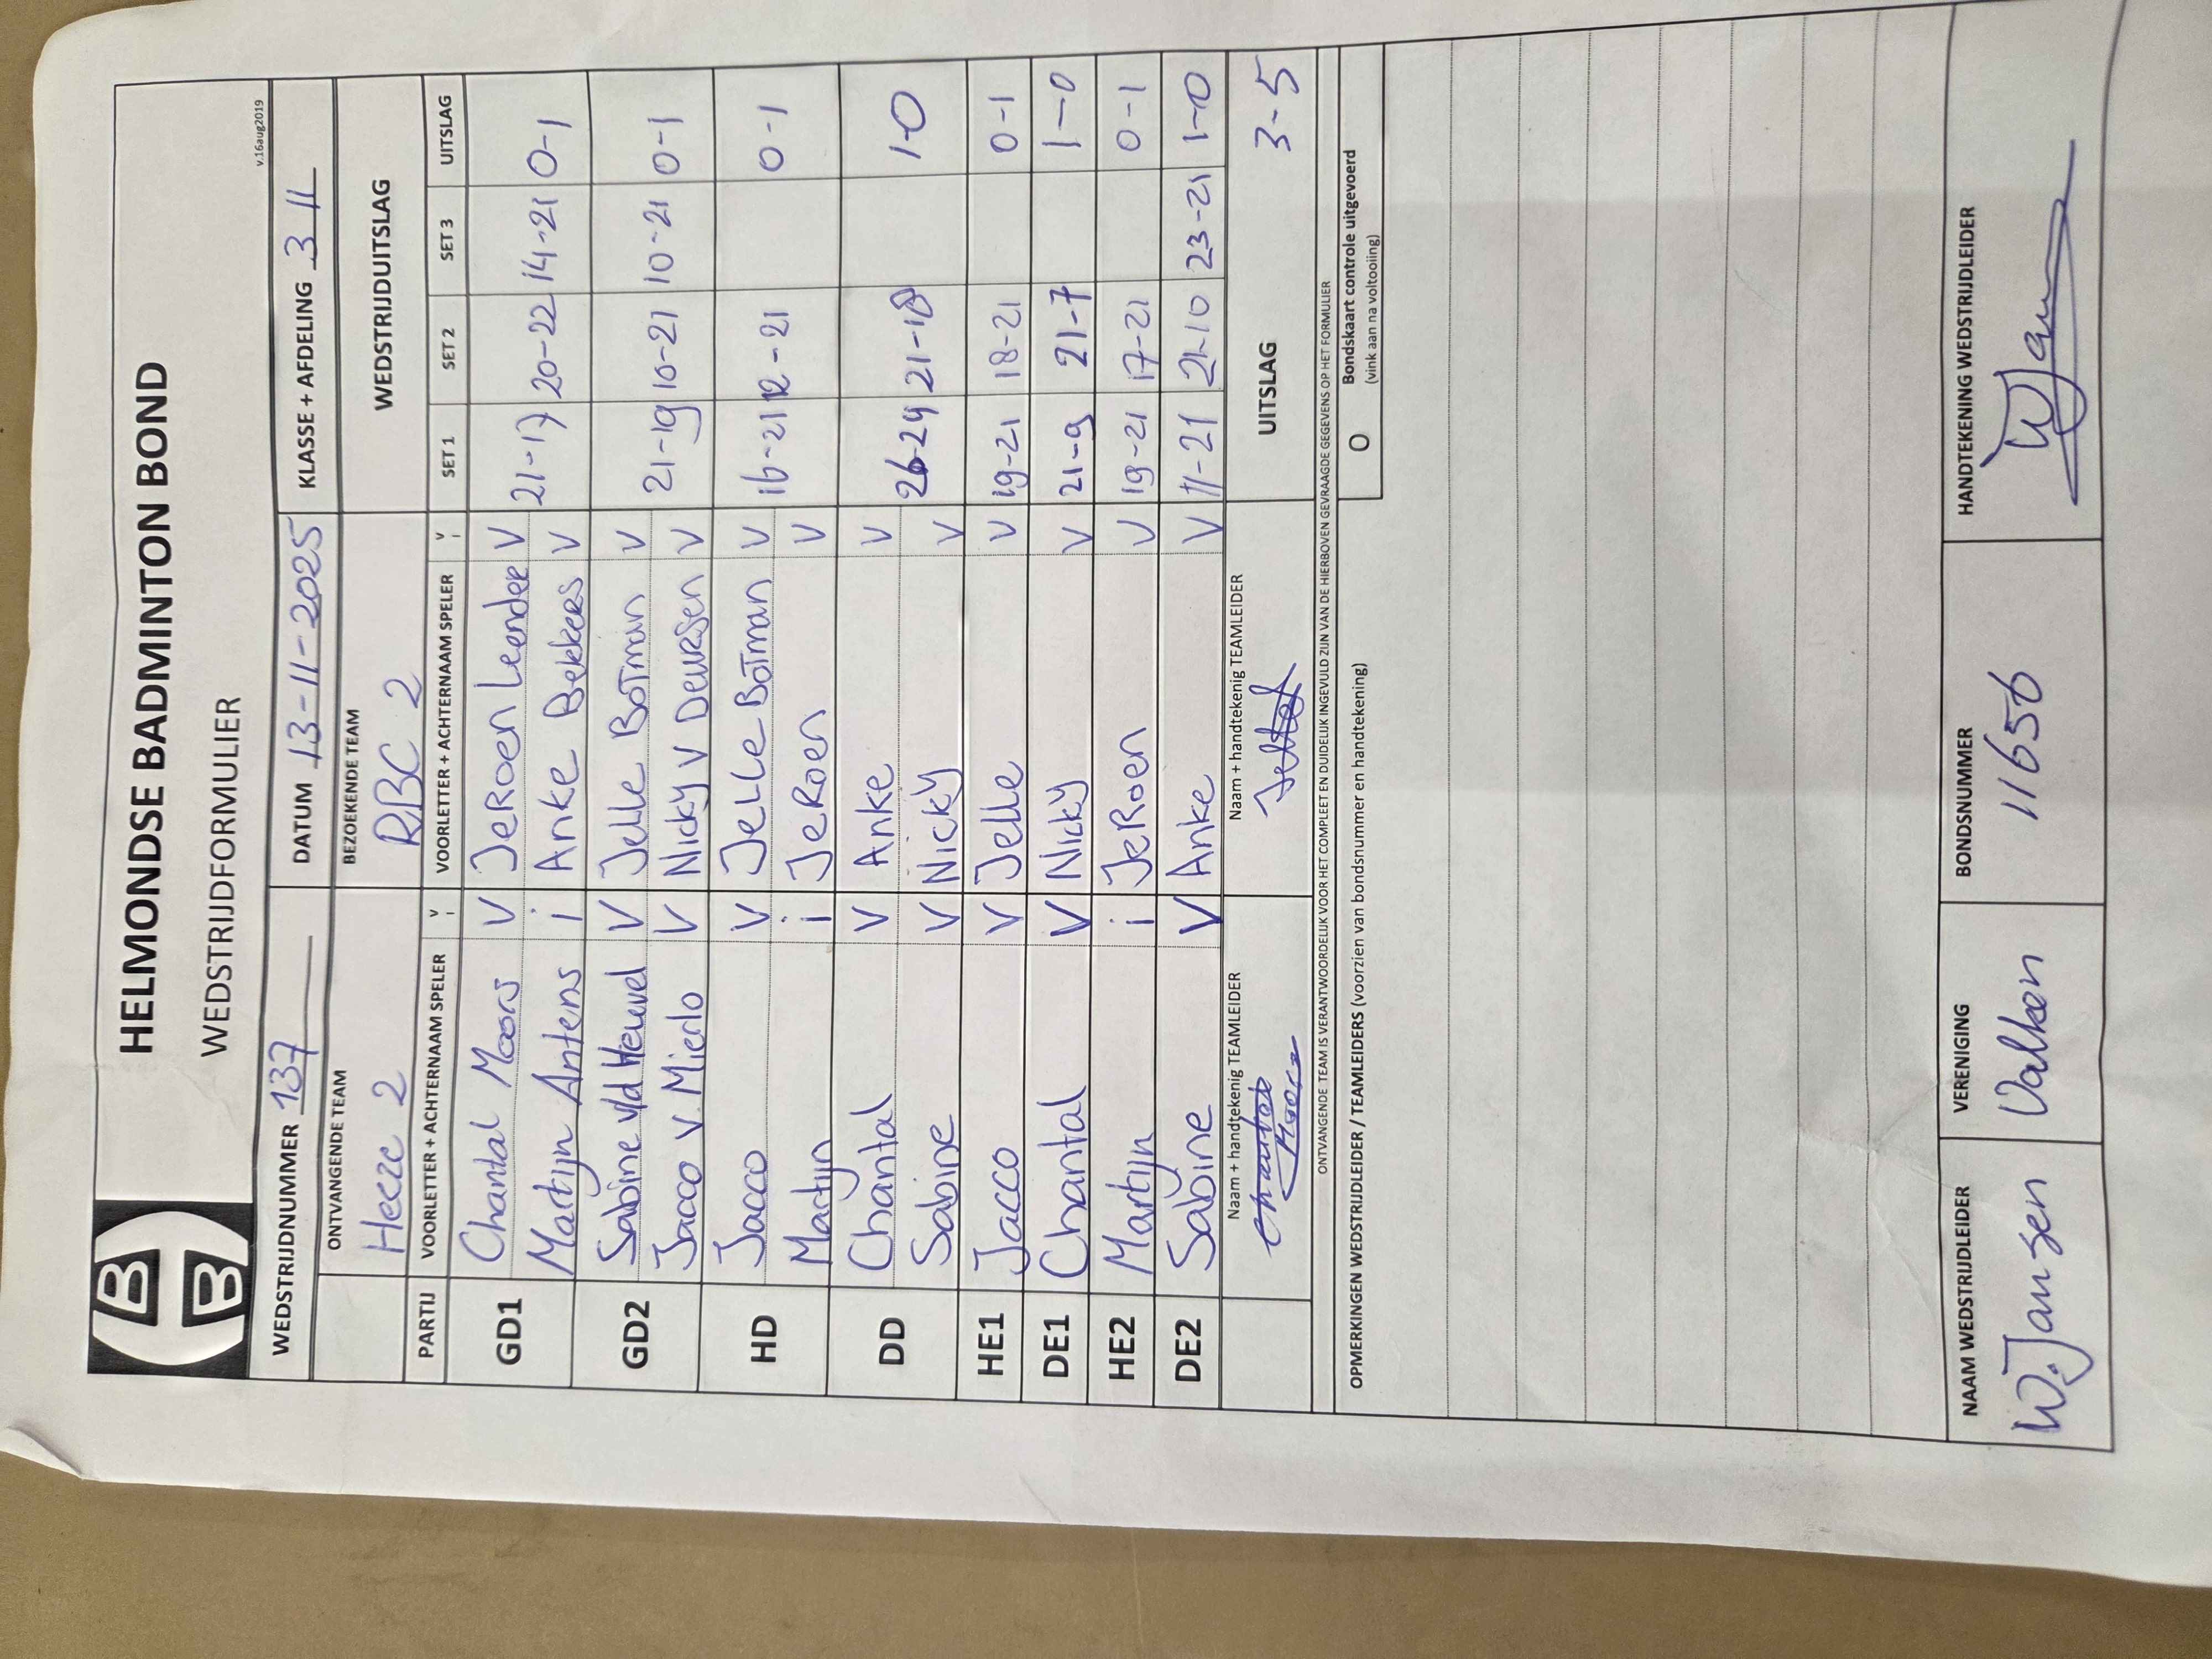 HELMONDSE BADMINTON BOND
WEDSTRIJDFORMULIER
v.16aug2019
WEDSTRIJDNUMMER 137 DATUM 13-11-2025 KLASSE + AFDELING 3 11
ONTVANGENDE TEAM BEZOEKENDE TEAM WEDSTRIJDUITSLAG
Heeze 2 RBC 2
PARTIJ VOORLETTER + ACHTERNAAM SPELER V i VOORLETTER + ACHTERNAAM SPELER V i SET 1 SET 2 SET 3 UITSLAG
GD1 Chantal Moors V Jeroen Leender V 21-17 20-22 14-21 0-1
Martijn Antens i Anke Bekkers V
GD2 Sabine v/d Heuvel V Jelle Botman V 21-19 16-21 10-21 0-1
Jacco v. Mierlo V Nicky v Deursen V
HD Jacco V Jelle Botman V 16-21 12-21 0-1
Martijn i Jeroen V
DD Chantal V Anke V 26-24 21-18 1-0
Sabine V Nicky V
HE1 Jacco V Jelle V 19-21 18-21 0-1
DE1 Chantal V Nicky V 21-9 21-7 1-0
HE2 Martijn i Jeroen V 19-21 17-21 0-1
DE2 Sabine V Anke V 11-21 21-10 23-21 1-0
Naam + handtekenig TEAMLEIDER Naam + handtekenig TEAMLEIDER UITSLAG 3-5
Moors
ONTVANGENDE TEAM IS VERANTWOORDELIJK VOOR HET COMPLEET EN DUIDELIJK INGEVULD ZIJN VAN DE HIERBOVEN GEVRAAGDE GEGEVENS OP HET FORMULIER
OPMERKINGEN WEDSTRIJDLEIDER / TEAMLEIDERS (voorzien van bondsnummer en handtekening) O Bondskaart controle uitgevoerd
(vink aan na voltooiing)
NAAM WEDSTRIJDLEIDER VERENIGING BONDSNUMMER HANDTEKENING WEDSTRIJDLEIDER
W. Jansen Valken 11656 WJansen